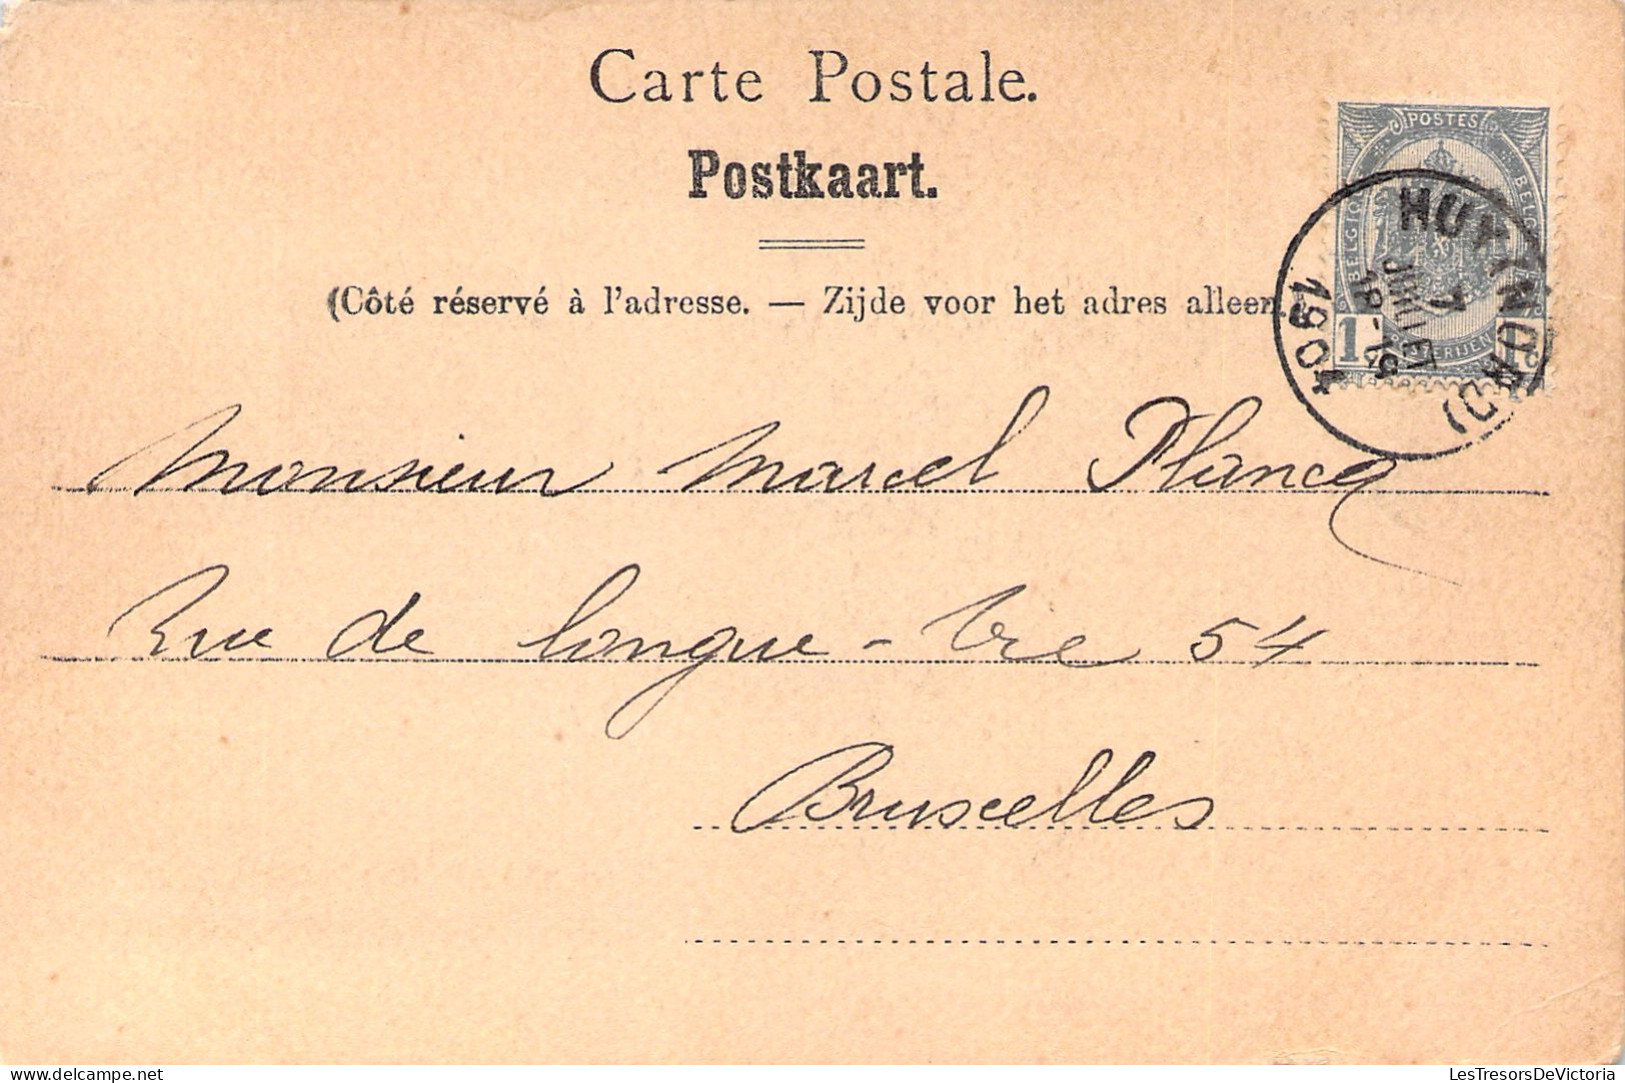 Carte Postale.
Postkaart.
(Côté réservé à l'adresse. — Zijde voor het adres alleen
POSTES
BELGIQUE
BELGI
POSTERIJEN
1c
1c
HUY (NORD)
7
JUILLET
18-19
1904
Monsieur Marcel Plancq
Rue de longue-vie 54
Bruxelles
LesTresorsDeVictoria
www.delcampe.net